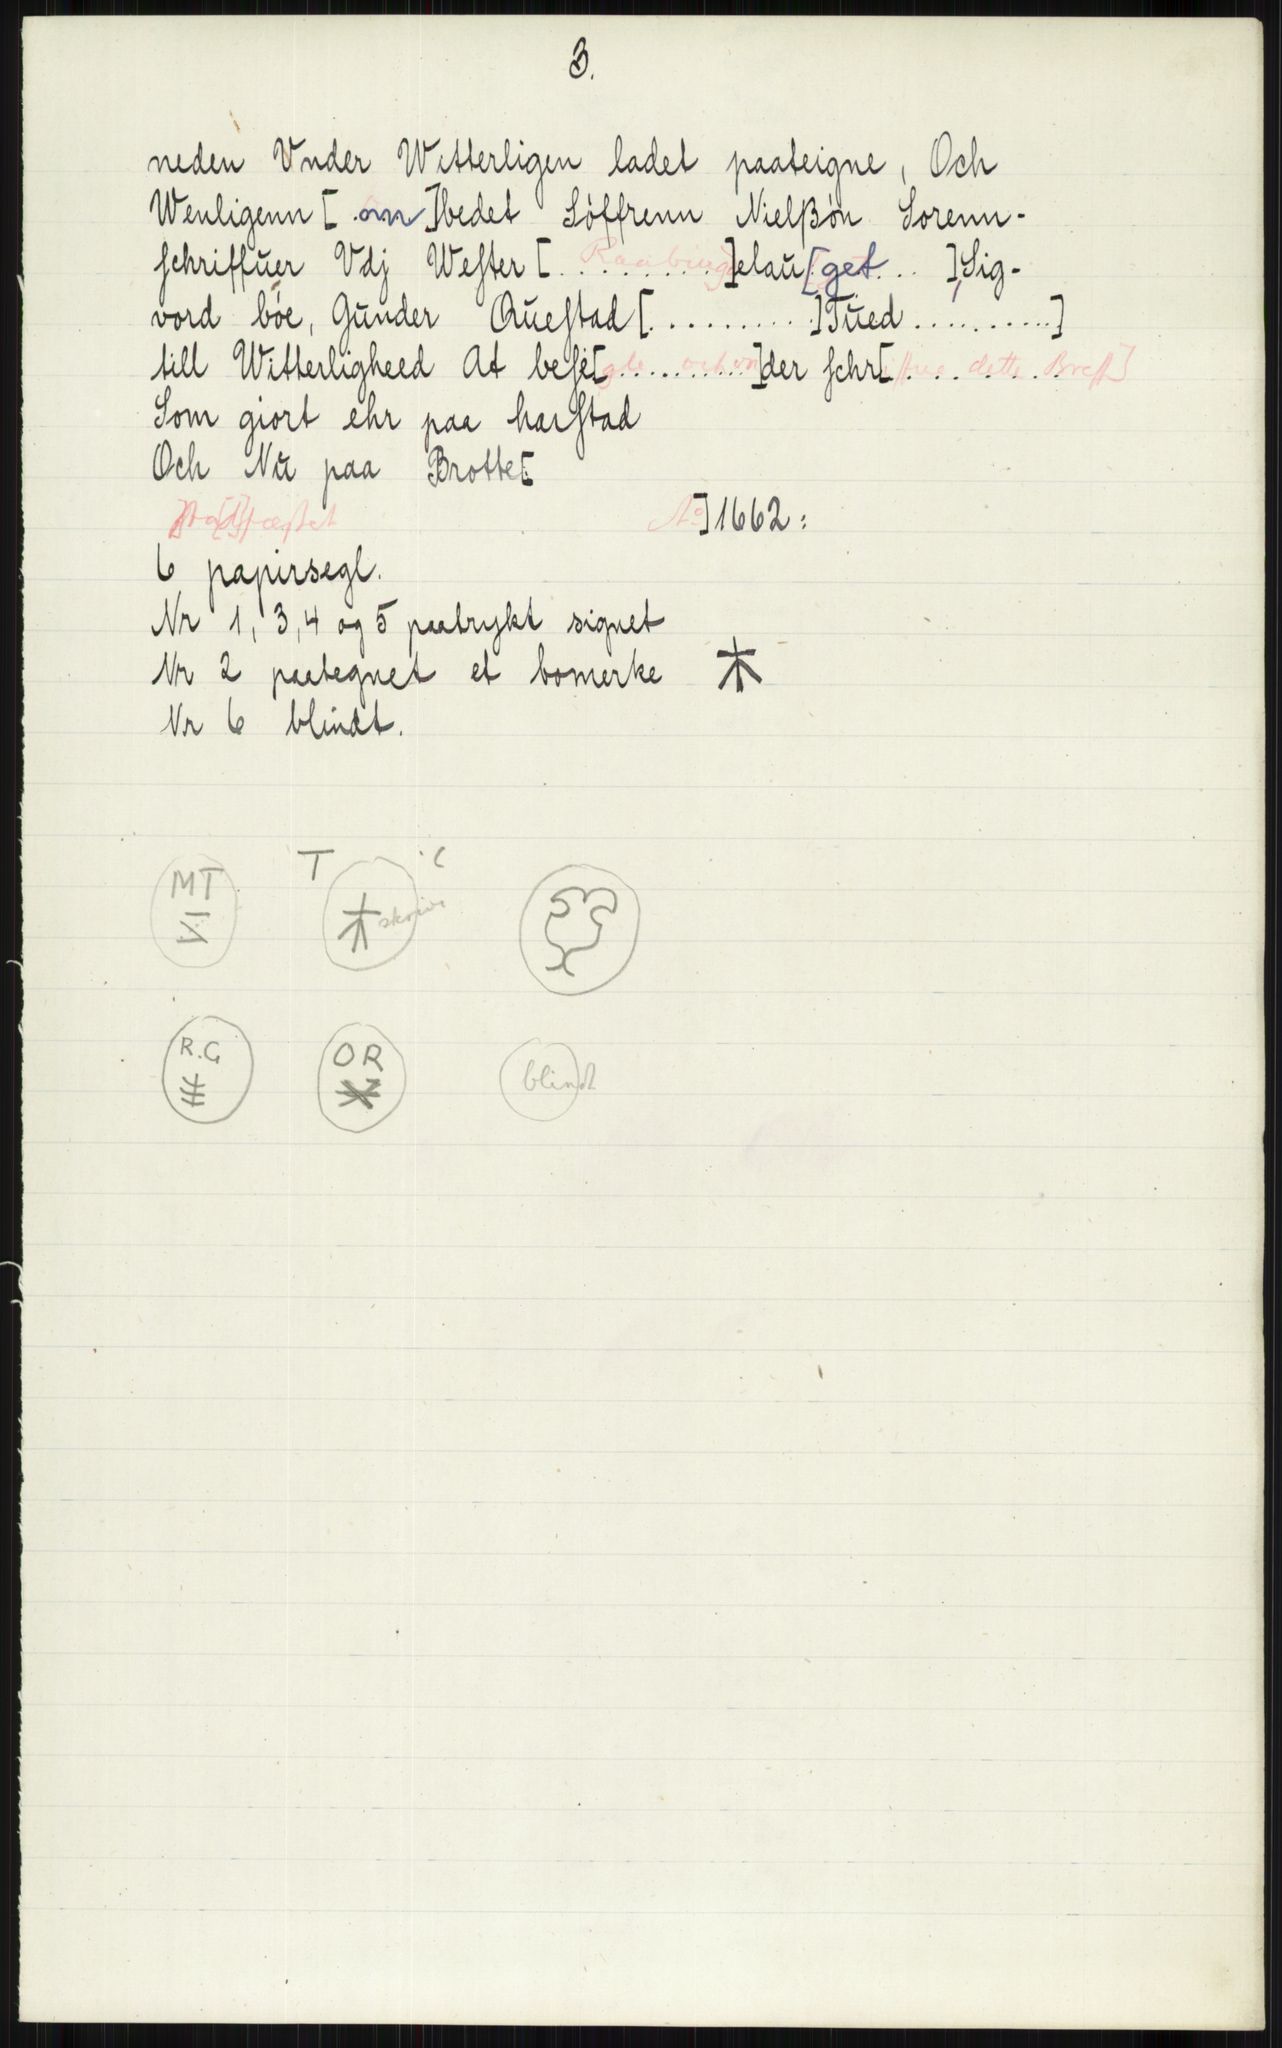 3.
neden Vnder Witterligen ladet paateigne, Och
Wenligenn [ .om ]bedet Söffrenn Nielßön Sorenn-
schriffuer Vdj Wester [ Raabiug ]elau[get . . ], Sig-
vord böe, Gunder Questad [. . . . . . . . . .]Tued . . . . . . . . . .]
till Witterligheed At besé[gle och vn]der schr[iffue dette Breff]
Som giort ehr paa harstad
Och Nu paa Brotte[
A°]1662:
6 papirsegl.
Nr 1, 3, 4 og 5 paatrykt signet
Nr 2 paategnet et bomerke
Nr 6 blindt.
MT
T
skrive
R.G
OR
blindt